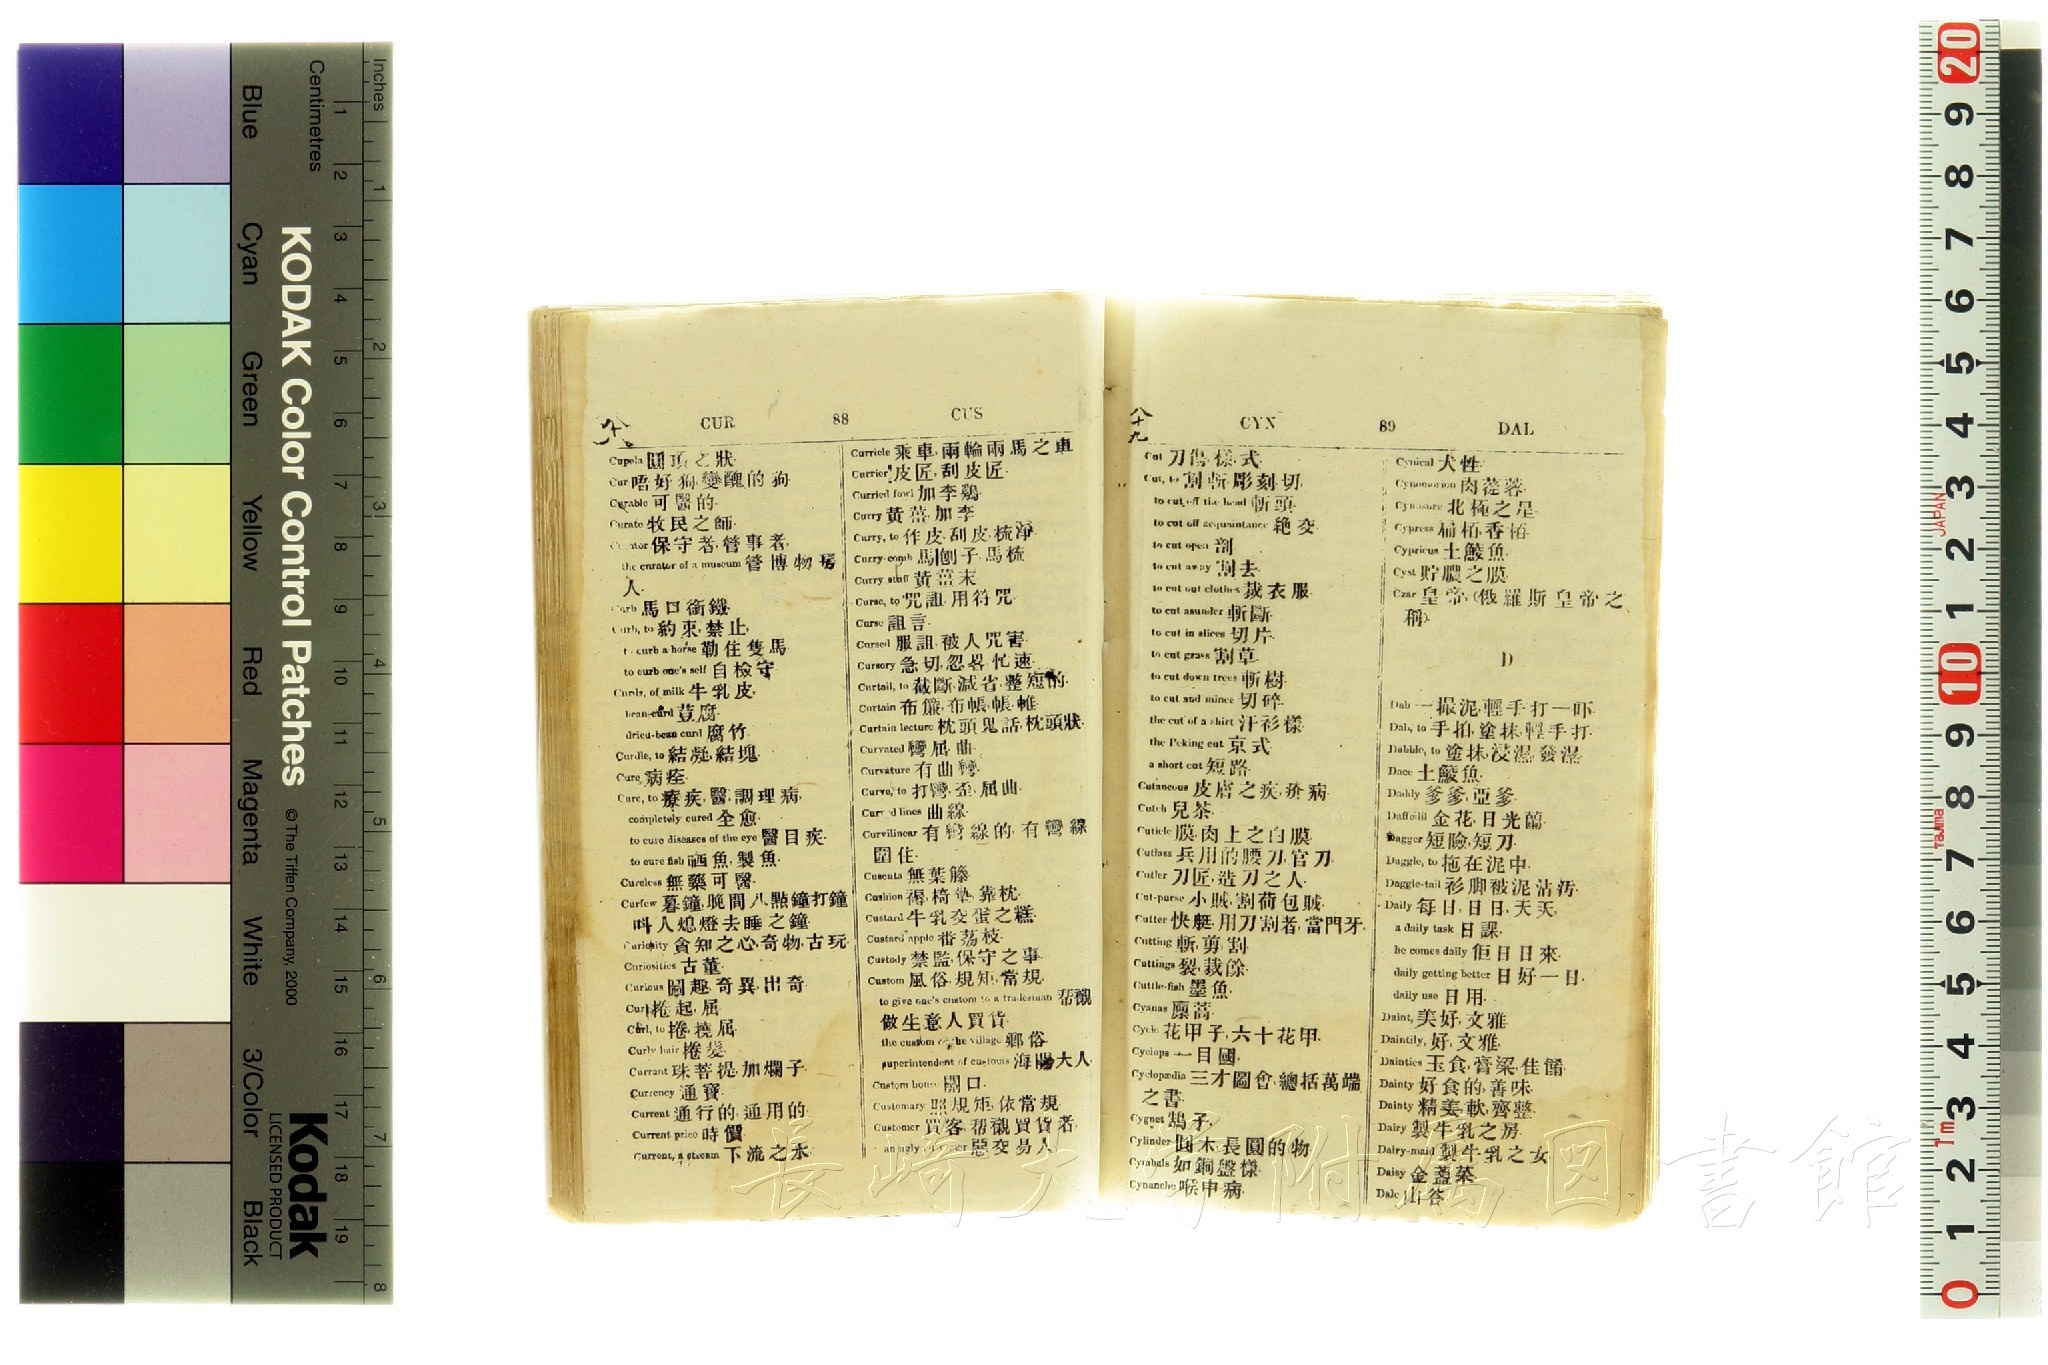 CUR 88 CUS
Cupola 圓頂之狀
Cur 唔好狗,變醜的狗
Curable 可醫的
Curate 牧民之師
保守者,管事者
the curator of a museum 管博物房
人
Curb 馬口銜鐵
Curb, to 約束,禁止
to curb a horse 勒住隻馬
to curb one's self 自檢守
Curds, of milk 牛乳皮
bean-curd 荳腐
dried-bean curd 腐竹
Curdle, to 結凝,結塊
Cure 病痊
Cure, to 療疾,醫,調理病
completely cured 全愈
to cure diseases of the eye 醫目疾
to cure fish 晒魚,製魚
Cureless 無藥可醫
Curfew 暮鐘,晚間八點鐘打鐘
叫人熄燈去睡之鐘
Curiosity 貪知之心,奇物,古玩
Curiosities 古董
Curious 圖趣,奇異,出奇
Curl 捲起,屈
Curl, to 捲,撓屈
Curly hair 捲髮
Currant 珠菩提,加爛子
Currency 通寶
Current 通行的,通用的
Current price 時價
Current, a stream 下流之水
Curricle 乘車,兩輪兩馬之車
Currier 皮匠,刮皮匠
Curried fowl 加李鷄
Curry 黃薑,加李
Curry, to 作皮,刮皮,梳淨
Curry-comb 馬刨子,馬梳
Curry stuff 黃薑末
Curse, to 咒詛,用符咒
Curse 詛言
Cursed 服詛,被人咒害
Cursory 急切,忽畧,忙速
Curtail, to 截斷,減省,整短的
Curtain 布簾,布帳,帳帷
Curtain lecture 枕頭鬼話,枕頭狀
Curvated 彎屈,曲
Curvature 有曲彎
Curve, to 打彎,歪,屈曲
Curved lines 曲線
Curvilinear 有彎線的,有彎線
圍住
Cuscuta 無葉籐
Cushion 褥,椅墊,靠枕
Custard 牛乳交蛋之糕
Custard apple 番荔枝
Custody 禁監,保守之事
Custom 風俗,規矩,常規
to give one's custom to a tradesman 幫襯
做生意人買貨
the custom of the village 鄉俗
superintendent of customs 海關大人
Custom house 關口
Customary 照規矩,依常規
Customer 買客,幫襯買貨者
an ugly customer 惡交易人
八十九
CYN 89 DAL
Cut 刀傷,樣,式
Cut, to 割,斬,彫刻,切
to cut off the head 斬頭
to cut off acquaintance 絶交
to cut open 剖
to cut away 割去
to cut out clothes 裁衣服
to cut asunder 斬斷
to cut in slices 切片
to cut grass 割草
to cut down trees 斬樹
to cut and mince 切碎
the cut of a shirt 汗衫樣
the Peking cut 京式
a short cut 短路
Cutaneous 皮膚之疾,疥病
Cutch 兒茶
Cuticle 膜,肉上之白膜
Cutlass 兵用的腰刀,官刀
Cutler 刀匠,造刀之人
Cut-purse 小賊,割荷包賊
Cutter 快艇,用刀割者,當門牙
Cutting 斬,剪,割
Cuttings 裂,裁餘
Cuttle-fish 墨魚
Cyanas 廩蒿
Cycle 花甲子,六十花甲
Cyclops 一目國
Cyclopædia 三才圖會,總括萬端
之書
Cygnet 鴣子
Cylinder 圓木,長圓的物
Cymbals 如銅盤樣
Cynanche 喉中病
Cynical 犬性
Cynomorion 肉蓯蓉
Cynosure 北極之星
Cypress 扁栢,香栢
Cypricus 土鯪魚
Cyst 貯膿之膜
Czar 皇帝,(俄羅斯皇帝之
稱)
D
Dab 一撮泥,輕手打一吓
Dab, to 手拍,塗抹,輕手打
Dabble, to 塗抹,浸濕,發濕
Dace 土鯪魚
Daddy 爹爹,亞爹
Daffodil 金花,日光蘭
Dagger 短劍,短刀
Daggle, to 拖在泥中
Daggle-tail 衫脚被泥沾汚
Daily 每日,日日,天天
a daily task 日課
he comes daily 佢日日來
daily getting better 日好一日
daily use 日用
Daint, 美好,文雅
Daintily, 好,文雅
Dainties 玉食,膏粱,佳餚
Dainty 好食的,善味
Dainty 精美,軟,齊整
Dairy 製牛乳之房
Dairy-maid 製牛乳之女
Daisy 金盞菜
Dale 山谷
長崎大学附属図書館
Inches
Centimetres
KODAK Color Control Patches
© The Tiffen Company, 2000
Kodak
LICENSED PRODUCT
Blue Cyan Green Yellow Red Magenta White 3/Color Black
1 2 3 4 5 6 7 8 9 10 11 12 13 14 15 16 17 18 19
1 2 3 4 5 6 7 8
20 9 8 7 6 5 4 3 2 1 10 9 8 7 6 5 4 3 2 1 0
JAPAN
Tajima
1m